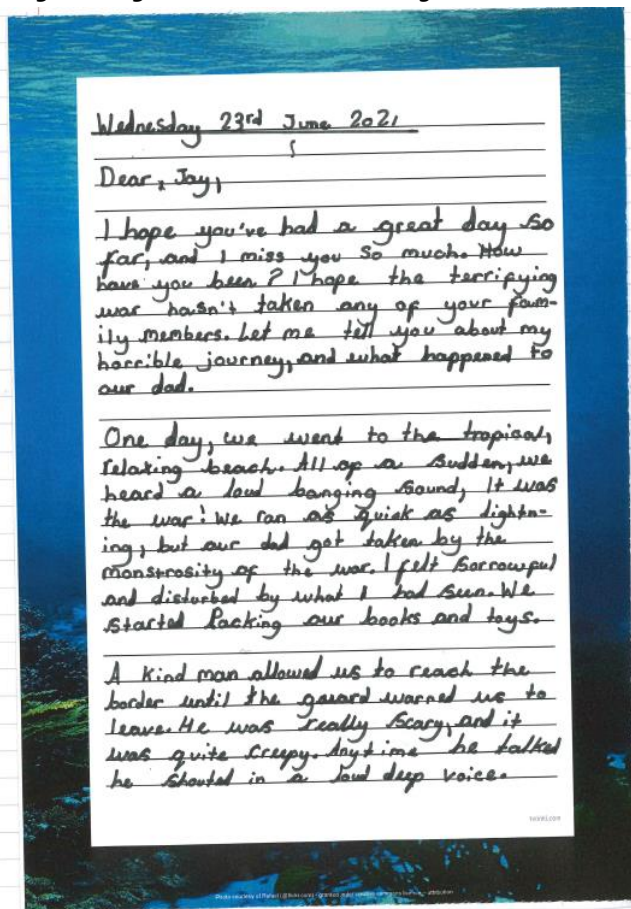 Wednesday 23rd June 2021
Dear, Jay,
I hope you've had a great day so
far, and I miss you so much. How
have you been? I hope the terrifying
war hasn't taken any of your fam-
ily members. Let me tell you about my
horrible journey, and what happened to
our dad.
One day, we went to the tropical,
relaxing beach. All of a sudden, we
heard a loud banging sound, It was
the war! We ran as quick as lightn-
ing, but our dad got taken by the
monstrosity of the war. I felt sorrowful
and disturbed by what I had seen. We
started Packing our books and toys.
A kind man allowed us to reach the
border until the gaurd warned us to
leave. He was really scary, and it
was quite creepy. Anytime he talked
he shouted in a loud deep voice.
twinkl.com